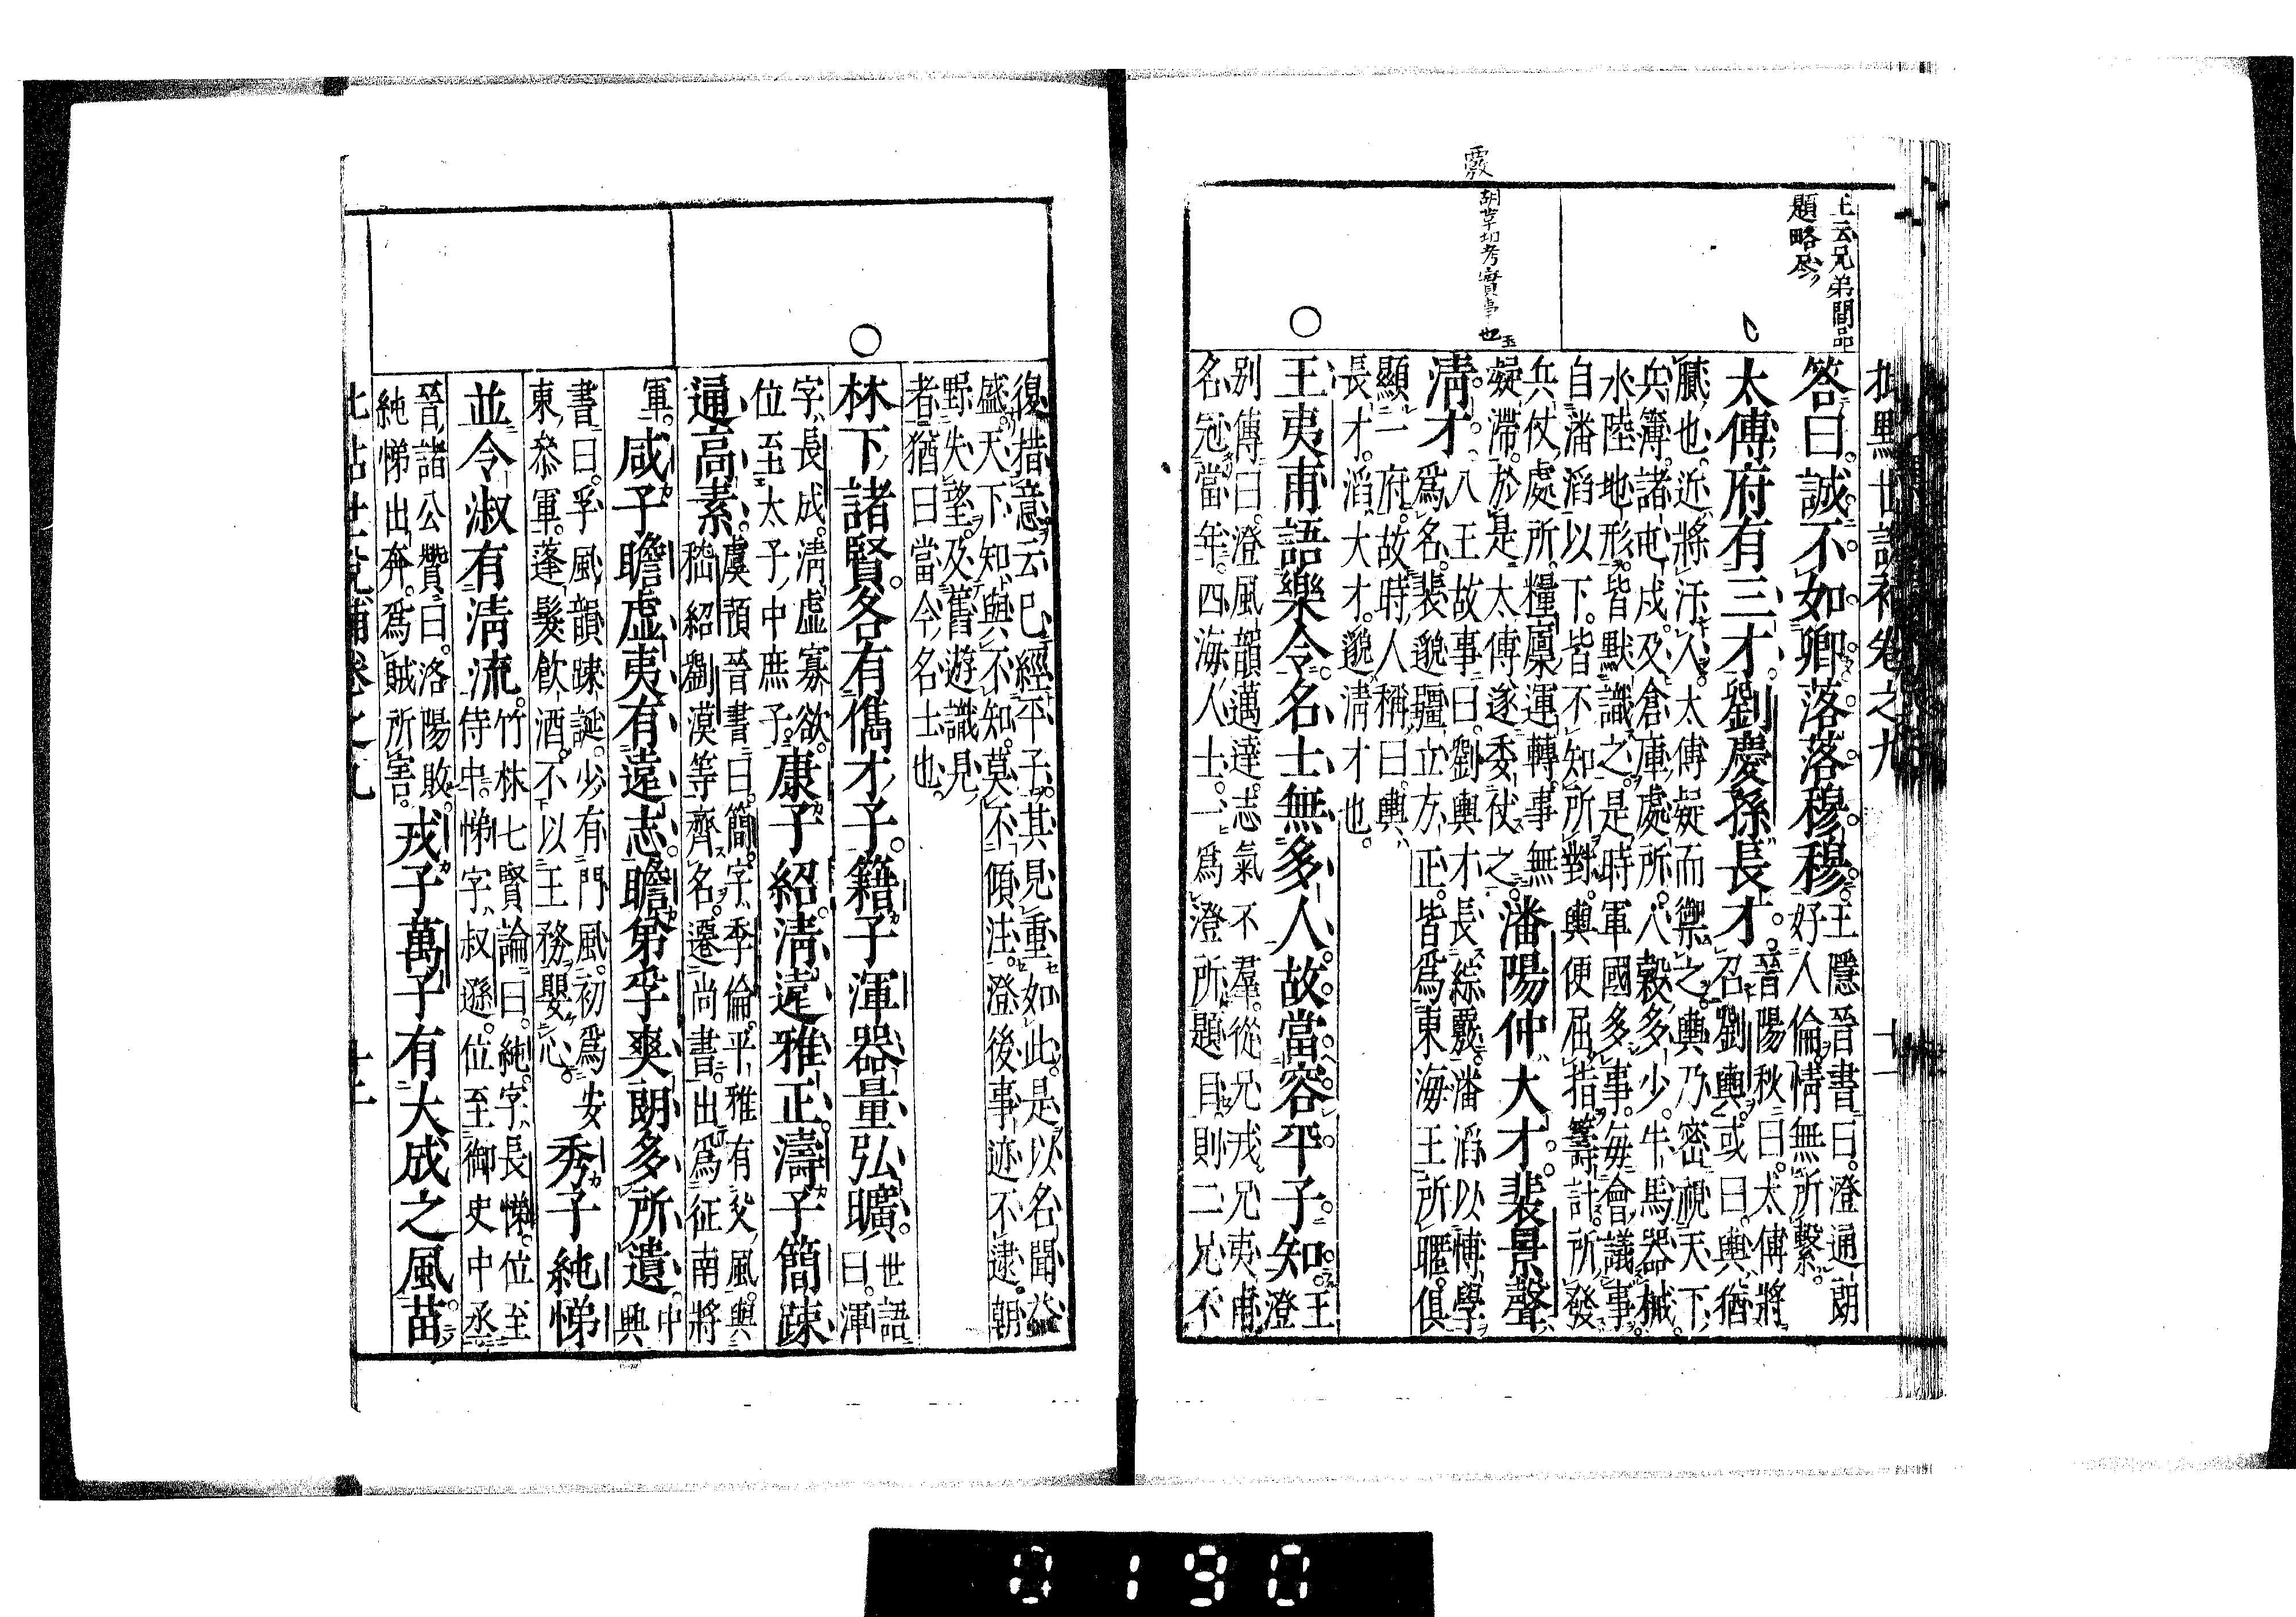 批點世說補卷之九
十一
王云兄弟間品
題略尽
覈
胡革切考實事也
玉
答曰。誠不如卿落落穆穆。王隱晉書曰。澄通朗
好人倫。情無所繫。
太傅府有三才。劉慶孫長才。晉陽秋曰。太傅將
召劉輿。或曰。輿猶
膩也。近將汙人。太傅疑而禦之。輿乃密視天下
兵簿。諸屯戍。及倉庫處所。人穀多少。牛馬器械
水陸地形。皆默識之。是時軍國多事。每會議事
自潘滔以下。皆不知所對。輿便屈指籌計。所發
兵仗處所。糧廩運轉。事無
疑滯。於是太傅遂委仗之。潘陽仲大才。裴景聲
清才。八王故事曰。劉輿才長綜覈。潘滔以博學
爲名。裴邈疆立方正。皆爲東海王所暱。俱
顯一府。故時人稱曰。輿
長才。滔大才。邈清才也。
王夷甫語樂令。名士無多人。故當容平子知。王
澄
別傳曰。澄風韻邁達。志氣不羣。從兄戎。兄夷甫
名冠當年。四海人士。一爲澄所題目。則二兄不
復措意。云巳經平子。其見重如此。是以名聞益
盛。天下知與不知。莫不傾注。澄後事迹不逮。朝
野失望。及舊遊識見
者。猶曰當今名士也。
林下諸賢。各有儁才子。籍子渾。器量弘曠。世語
曰。渾
字長成。清虛寡欲。
位至太子中庶子。康子紹。清遠雅正。濤子簡。踈
通高素。虞預晉書曰。簡字季倫。平雅有父風。與
嵇紹劉漠等齊名。遷尚書。出爲征南將
軍。咸子瞻。虛夷有遠志。瞻弟孚。爽朗多所遺。中
興
書曰。孚風韻踈誕。少有門風。初爲安
東叅軍。蓬髮飲酒。不以王務嬰心。秀子純悌
並令淑有清流。竹林七賢論曰。純字長悌。位至
侍中。悌字叔遜。位至御史中丞
晉諸公贊曰。洛陽敗。
純悌出奔。爲賊所害。戎子萬子。有大成之風。苗
批點世說補卷之九
十二